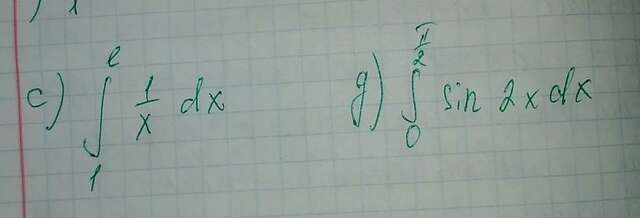 c) ∫₁ᵉ 1/x dx
g) ∫₀^(π/2) sin 2x dx